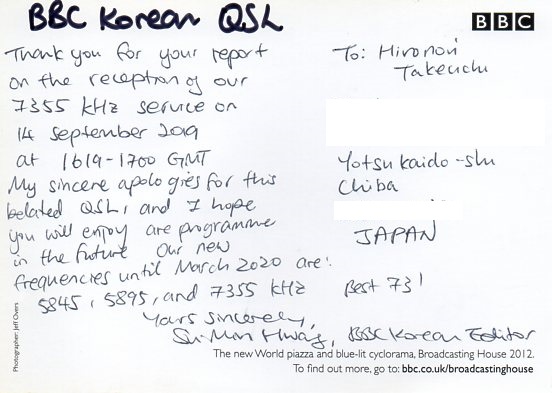 BBC Korean QSL
BBC
Thank you for your report
on the reception of our
7355 kHz service on
14 September 2019
at 1619-1700 GMT
My sincere apologies for this
belated QSL, and I hope
you will enjoy are programme
in the future Our new
frequencies until March 2020 are:
5845, 5895, and 7355 kHz
Yours sincerely,
Su-Min Hwang, BBC Korean Editor
To: Hironori
Takeuchi
Yotsukaido-shi
Chiba
JAPAN
Best 73!
The new World piazza and blue-lit cyclorama, Broadcasting House 2012.
To find out more, go to: bbc.co.uk/broadcastinghouse
Photographer: Jeff Overs